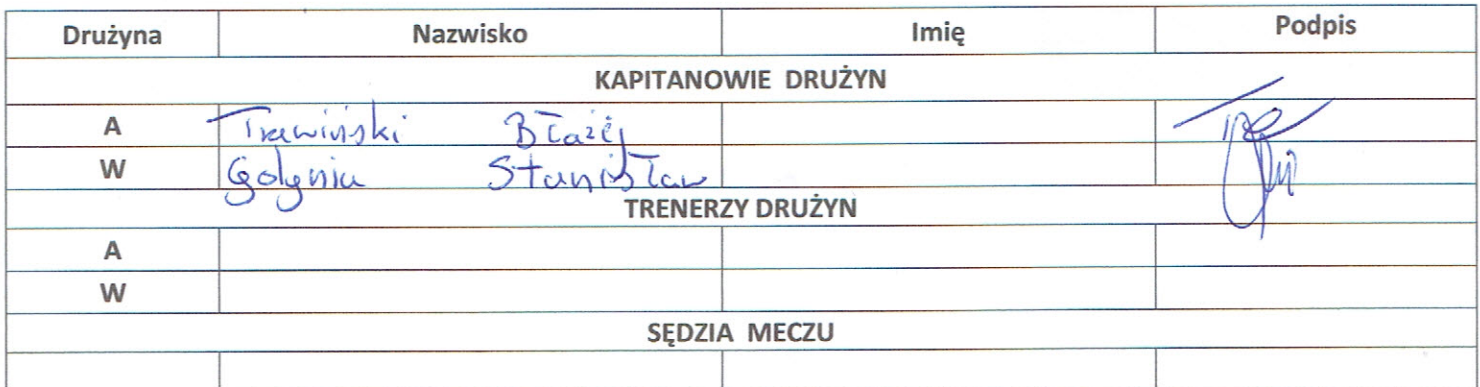 Drużyna Nazwisko Imię Podpis
KAPITANOWIE DRUŻYN
A Trawiński Błażej
W Gołynia Stanisław
TRENERZY DRUŻYN
A
W
SĘDZIA MECZU